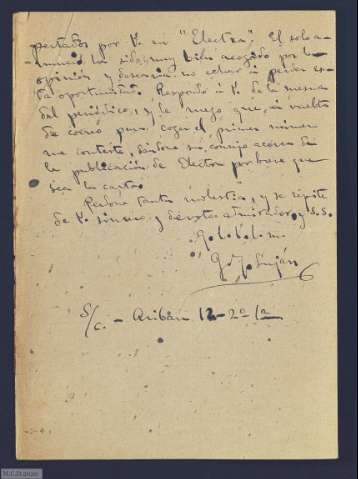 pectados por V. en "Electra". El solo a-
nuncio ha sido muy bien acogido por la
opinión y desearía no echar á perder es-
ta oportunidad. Respondo á V. de la marcha
del periódico, y le ruego que, á vuelta
de correo para coger el primer número
me conteste, diciéndome si consigo acerca de
la publicación de Electra por breve que
sea la carta.
Perdone tanta molestia, y se repite
de V. sincero y devoto admirador y S. S.
q. l. b. l. m.
S/c. - Aribau 12-2º 1ª